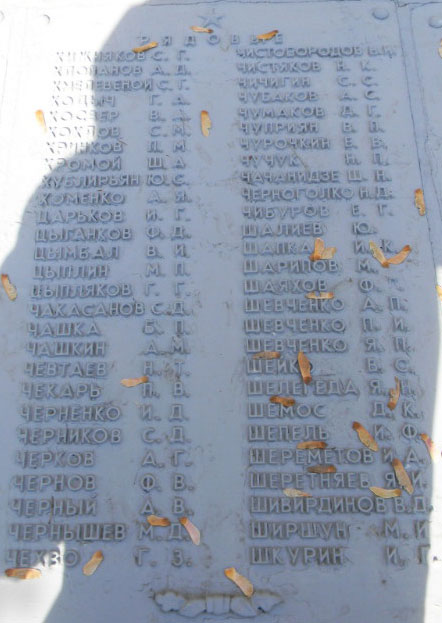 РЯДОВЫЕ
ХИЖНЯКОВ С. Г.
ХЛОПАНОВ А. Д.
ХМЕЛЕВЕНОЙ С. Г.
ХОДЫЧ Г. А.
ХОСВЕР В. А.
ХОХЛОВ С. М.
П. М.
ХРОМОЙ Ш. А.
ХУБЛИРЬЯН Ю. С.
ХОМЕНКО А. Я.
ЦАРЬКОВ И. Г.
ЦЫГАНКОВ Ф. Д.
ЦЫМБАЛ В. И.
ЦЫПЛИН М. П.
ЦЫПЛЯКОВ Г. Г.
ЧАКАСАНОВ С. Д.
ЧАШКА Б. П.
ЧАШКИН А. М.
ЧЕВТАЕВ Н. Т.
ЧЕКАРЬ П. В.
ЧЕРНЕНКО И. Д.
ЧЕРНИКОВ С. Д.
ЧЕРКОВ А. Г.
ЧЕРНОВ Ф. В.
ЧЕРНЫЙ А. В.
ЧЕРНЫШЕВ М. Д.
Г. З.
ЧИСТОБОРОДОВ В. И.
ЧИСТЯКОВ Н. К.
ЧИЧИГИН С. С.
ЧУБАКОВ А. С.
ЧУМАКОВ П. Г.
ЧУПРИЯН В. П.
ЧУРОЧКИН Е. В.
ЧУЧУК Н. П.
ЧАЧАНИДЗЕ Ш. Н.
ЧЕРНОГОЛКО Н. Д.
ЧИБУРОВ Е. Г.
ШАЛИЕВ Ю.
ШАПКА И. К.
ШАРИПОВ М.
ШАЯХОВ Ф.
ШЕВЧЕНКО А. П.
ШЕВЧЕНКО П. И.
ШЕВЧЕНКО Я. П.
ШЕЙКО В. С.
ШЕЛЕГЕДА Я. Н.
ШЕМОС Д. К.
ШЕПЕЛЬ И. Ф.
ШЕРЕМЕТОВ И. А.
ШЕРЕТНЯЕВ Я. И.
ШИБИРДИНОВ В. Д.
ШИРШУН М. И.
ШКУРИН И. Г.